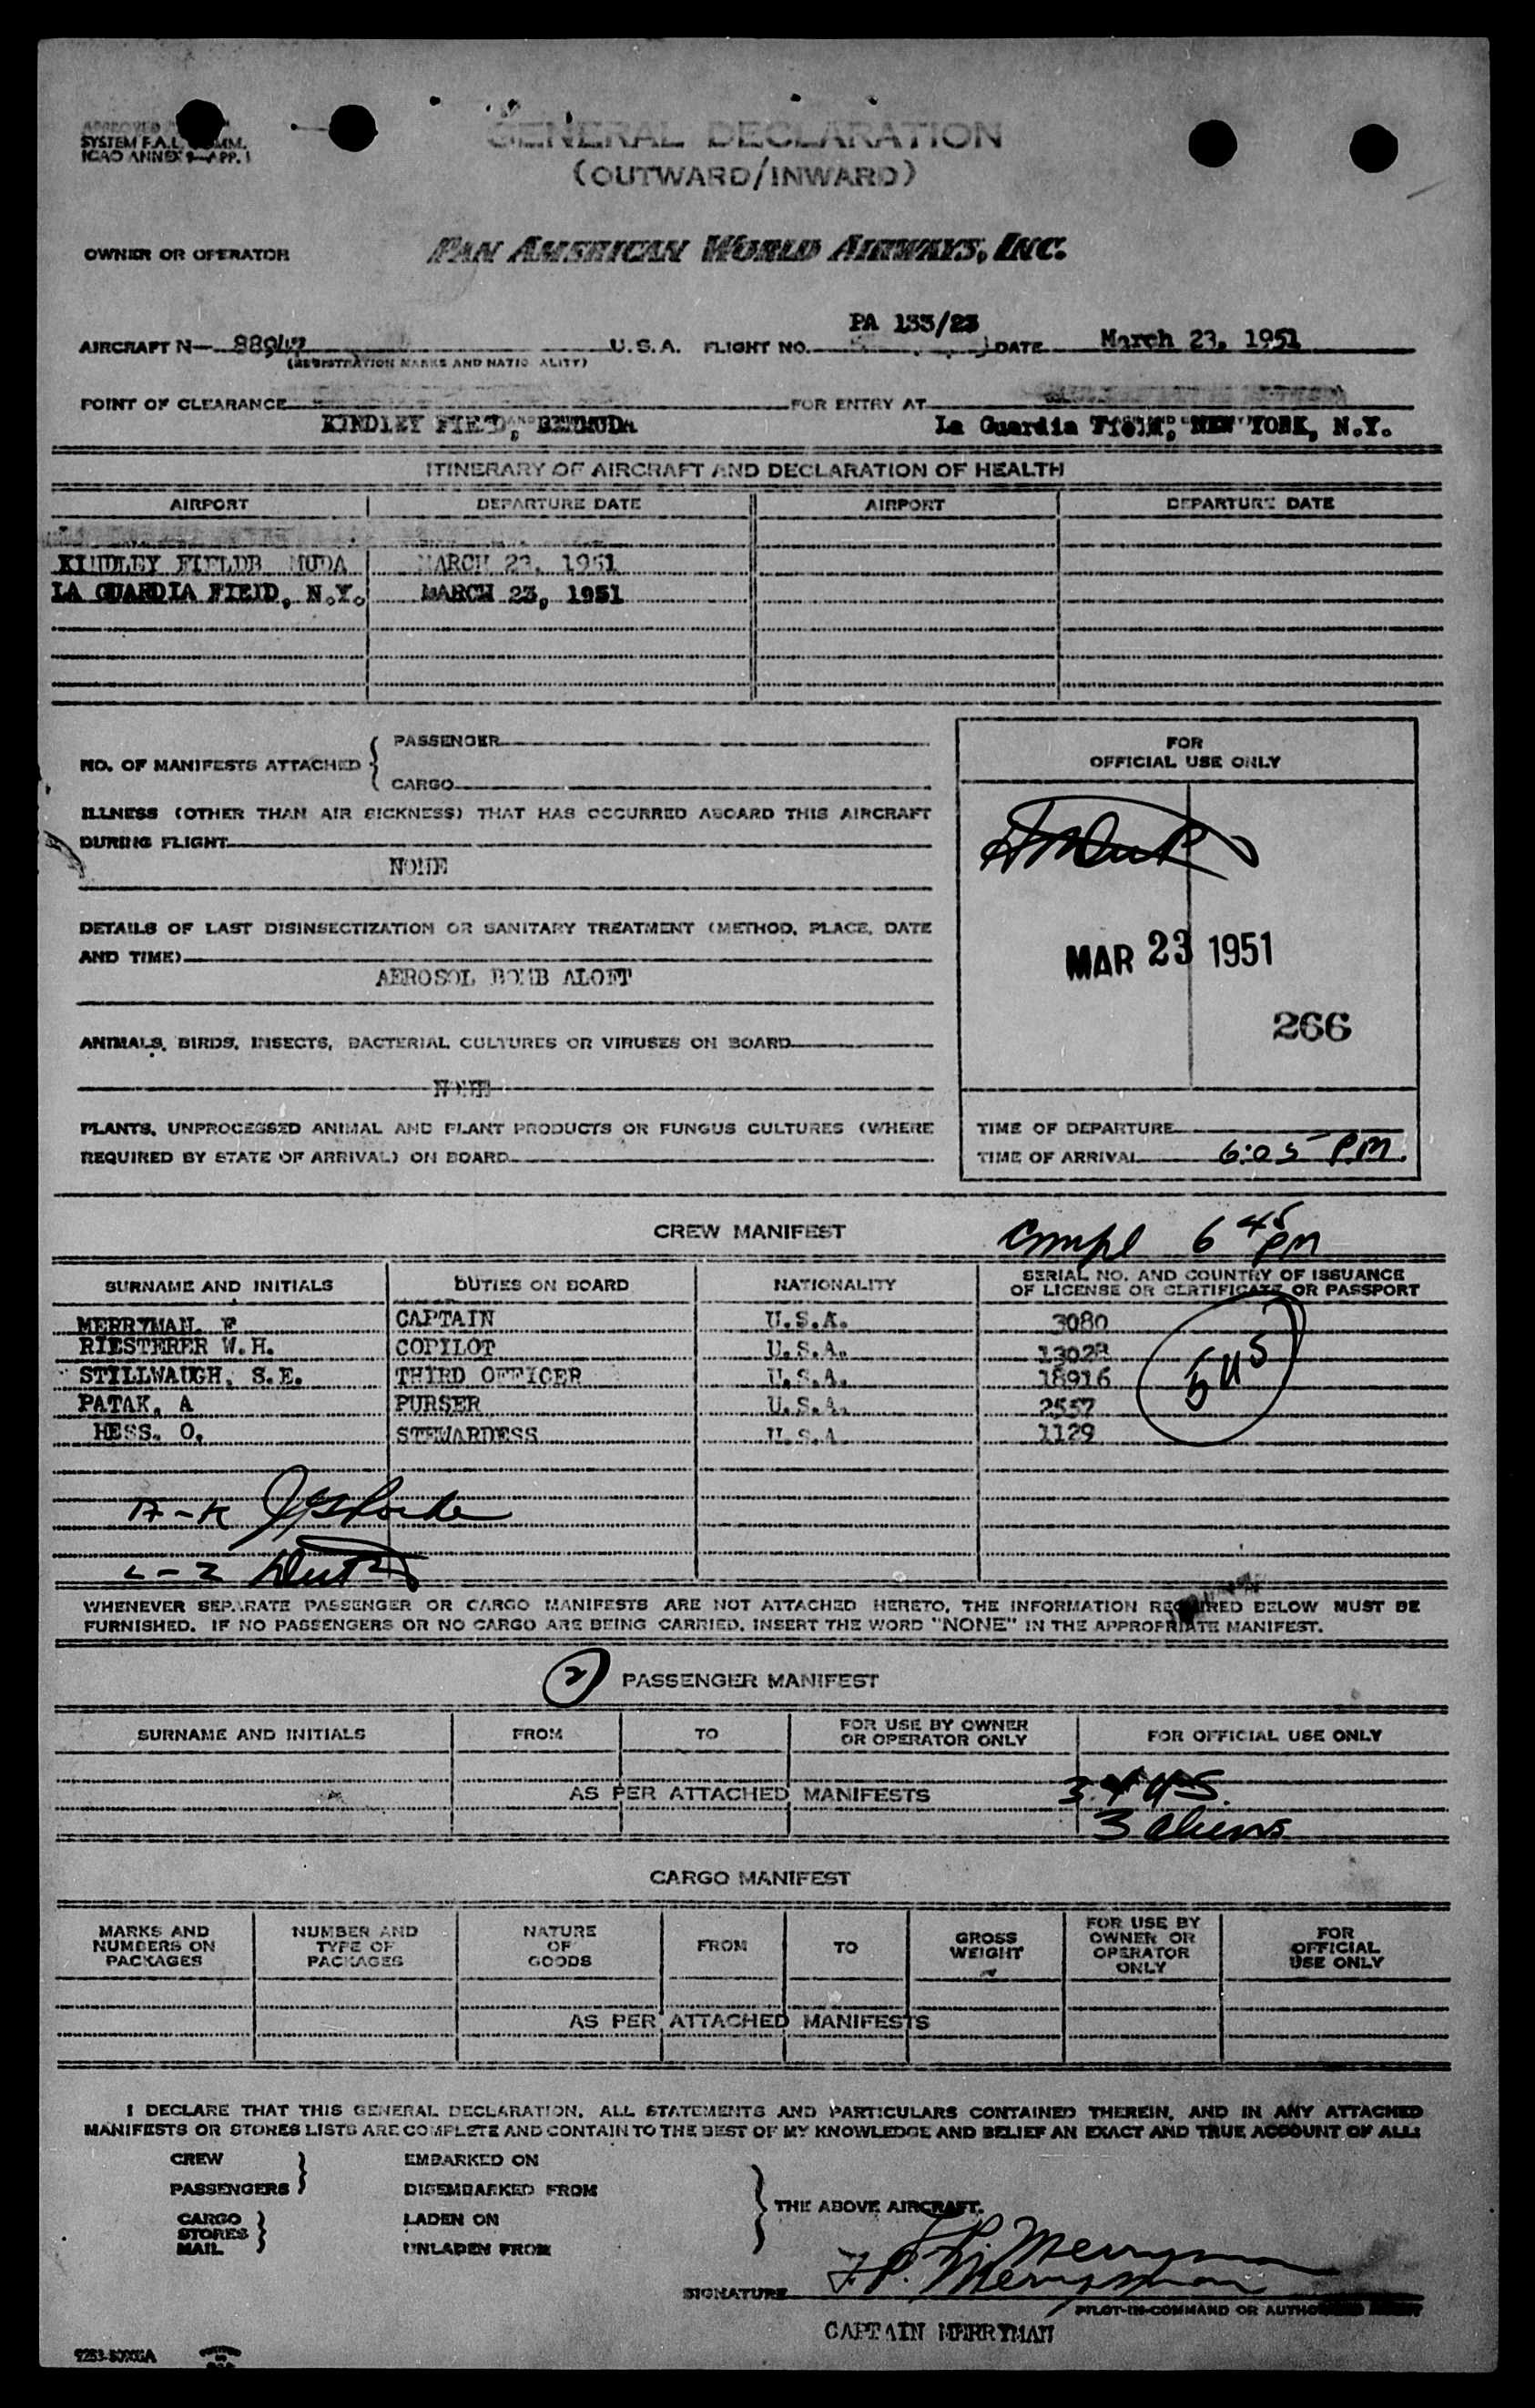 APPROVED
SYSTEM F.A.L. COMM.
ICAO ANNEX 9—APP. 1
GENERAL DECLARATION
(OUTWARD/INWARD)
OWNER OR OPERATOR PAN AMERICAN WORLD AIRWAYS, INC.
PA 133/23
AIRCRAFT N— 88947 U.S.A. FLIGHT NO. DATE March 23, 1951
(REGISTRATION MARKS AND NATIONALITY)
POINT OF CLEARANCE FOR ENTRY AT
KINDLEY FIELD, BERMUDA La Guardia Field, NEW YORK, N.Y.
ITINERARY OF AIRCRAFT AND DECLARATION OF HEALTH
AIRPORT DEPARTURE DATE AIRPORT DEPARTURE DATE
KINDLEY FIELDB MUDA MARCH 23, 1951
LA GUARDIA FIELD, N.Y. MARCH 23, 1951
NO. OF MANIFESTS ATTACHED { PASSENGER
CARGO
FOR
OFFICIAL USE ONLY
ILLNESS (OTHER THAN AIR SICKNESS) THAT HAS OCCURRED ABOARD THIS AIRCRAFT
DURING FLIGHT
NONE
DETAILS OF LAST DISINSECTIZATION OR SANITARY TREATMENT (METHOD, PLACE, DATE
AND TIME)
AEROSOL BOMB ALOFT
MAR 23 1951
266
ANIMALS, BIRDS, INSECTS, BACTERIAL CULTURES OR VIRUSES ON BOARD
NONE
PLANTS, UNPROCESSED ANIMAL AND PLANT PRODUCTS OR FUNGUS CULTURES (WHERE
REQUIRED BY STATE OF ARRIVAL) ON BOARD
TIME OF DEPARTURE
TIME OF ARRIVAL 6:05 PM.
CREW MANIFEST Compl 6 45 PM
SURNAME AND INITIALS DUTIES ON BOARD NATIONALITY SERIAL NO. AND COUNTRY OF ISSUANCE
OF LICENSE OR CERTIFICATE OR PASSPORT
MERRYMAN. F CAPTAIN U.S.A. 3080
RIESTERER W.H. COPILOT U.S.A. 13028
STILLWAUGH, S.E. THIRD OFFICER U.S.A. 18916
PATAK, A PURSER U.S.A. 2557
HESS. O. STEWARDESS U.S.A 1129
5 US
A-K
L-Z
WHENEVER SEPARATE PASSENGER OR CARGO MANIFESTS ARE NOT ATTACHED HERETO, THE INFORMATION REQUIRED BELOW MUST BE
FURNISHED. IF NO PASSENGERS OR NO CARGO ARE BEING CARRIED, INSERT THE WORD "NONE" IN THE APPROPRIATE MANIFEST.
2 PASSENGER MANIFEST
SURNAME AND INITIALS FROM TO FOR USE BY OWNER
OR OPERATOR ONLY FOR OFFICIAL USE ONLY
AS PER ATTACHED MANIFESTS 34 US.
3 aliens
CARGO MANIFEST
MARKS AND
NUMBERS ON
PACKAGES NUMBER AND
TYPE OF
PACKAGES NATURE
OF
GOODS FROM TO GROSS
WEIGHT FOR USE BY
OWNER OR
OPERATOR
ONLY FOR
OFFICIAL
USE ONLY
AS PER ATTACHED MANIFESTS
I DECLARE THAT THIS GENERAL DECLARATION, ALL STATEMENTS AND PARTICULARS CONTAINED THEREIN, AND IN ANY ATTACHED
MANIFESTS OR STORES LISTS ARE COMPLETE AND CONTAIN TO THE BEST OF MY KNOWLEDGE AND BELIEF AN EXACT AND TRUE ACCOUNT OF ALL:
CREW EMBARKED ON
PASSENGERS } DISEMBARKED FROM
THE ABOVE AIRCRAFT.
CARGO LADEN ON
STORES }
MAIL UNLADEN FROM
F.P. Merryman
SIGNATURE F.P. Merryman
PILOT-IN-COMMAND OR AUTHORIZED AGENT
CAPTAIN MERRYMAN